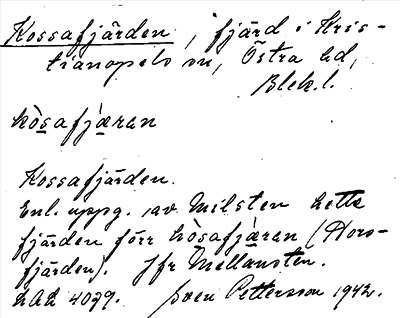 Kossafjärden, fjärd i Kris-
tianopels sn, Östra hd,
Blek. l.
kòsafjæran
Kossafjärden.
Enl. uppg. av Milsten hette
fjärden förr kòsafjæran (Hors-
fjärden). Jfr Mellansten.
LAL 4029. Sven Pettersson 1942.